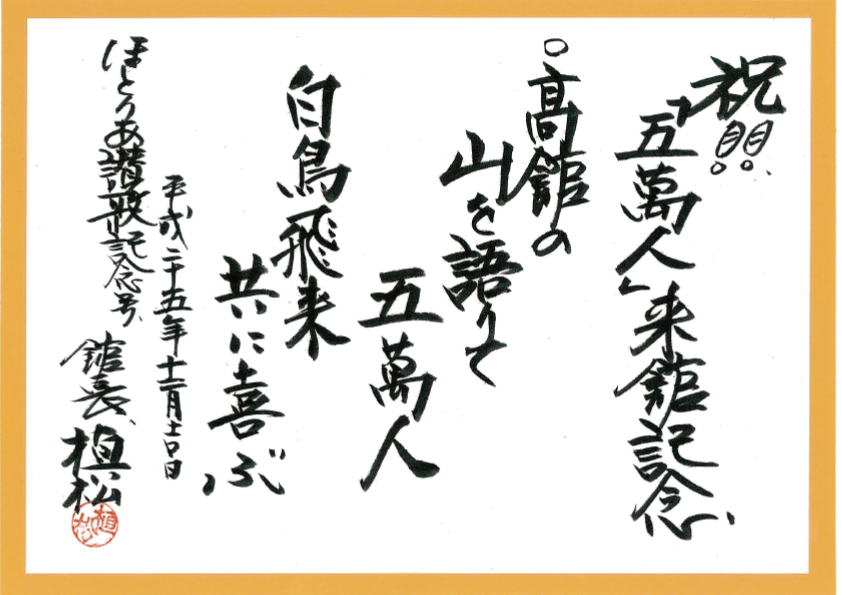 祝!!
「五萬人」来館記念
○高舘の
山を語りて
五萬人
白鳥飛来
共に喜ぶ
平成二十五年十二月吉日
ほとりあ讃歌記念号
館長、植松